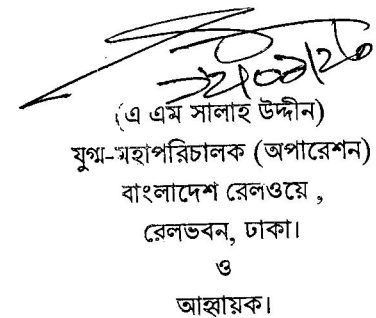 (এ এম সালাহ উদ্দীন)
যুগ্ম-মহাপরিচালক (অপারেশন)
বাংলাদেশ রেলওয়ে ,
রেলভবন, ঢাকা।
ও
আহ্বায়ক।